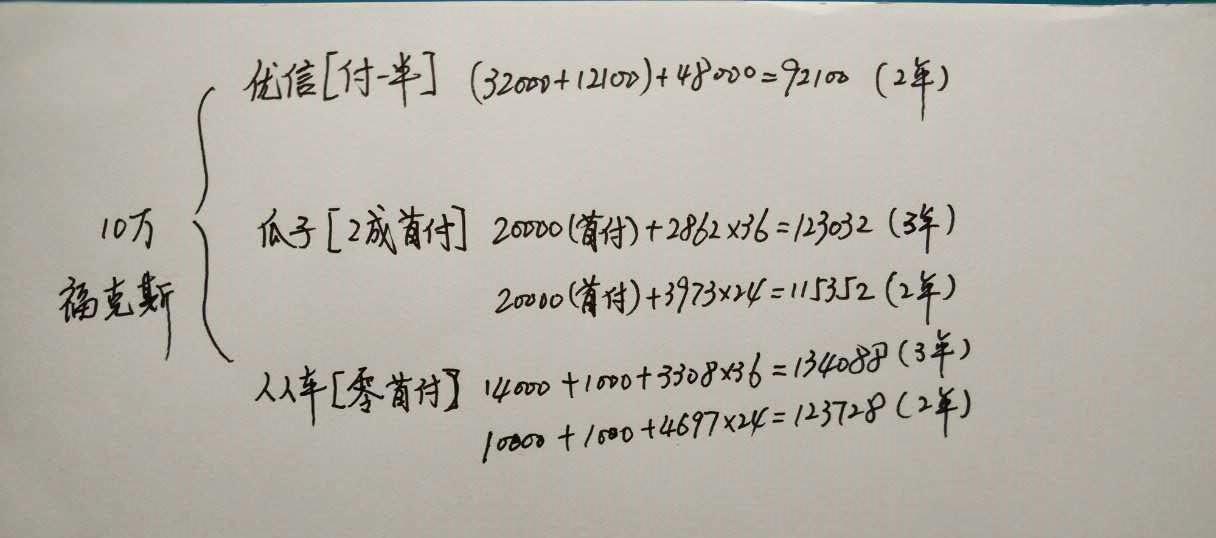 优信[付一半] (32000+12100)+48000=92100 (2年)
10万
福克斯
瓜子[2成首付] 20000(首付)+2862×36=123032 (3年)
20000(首付)+3973×24=115352 (2年)
人人车[零首付] 14000+1000+3308×36=134088 (3年)
10000+1000+4697×24=123728 (2年)